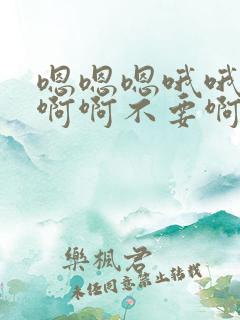 嗯嗯嗯哦哦
啊啊不要啊
樂楓君
未经同意禁止转载